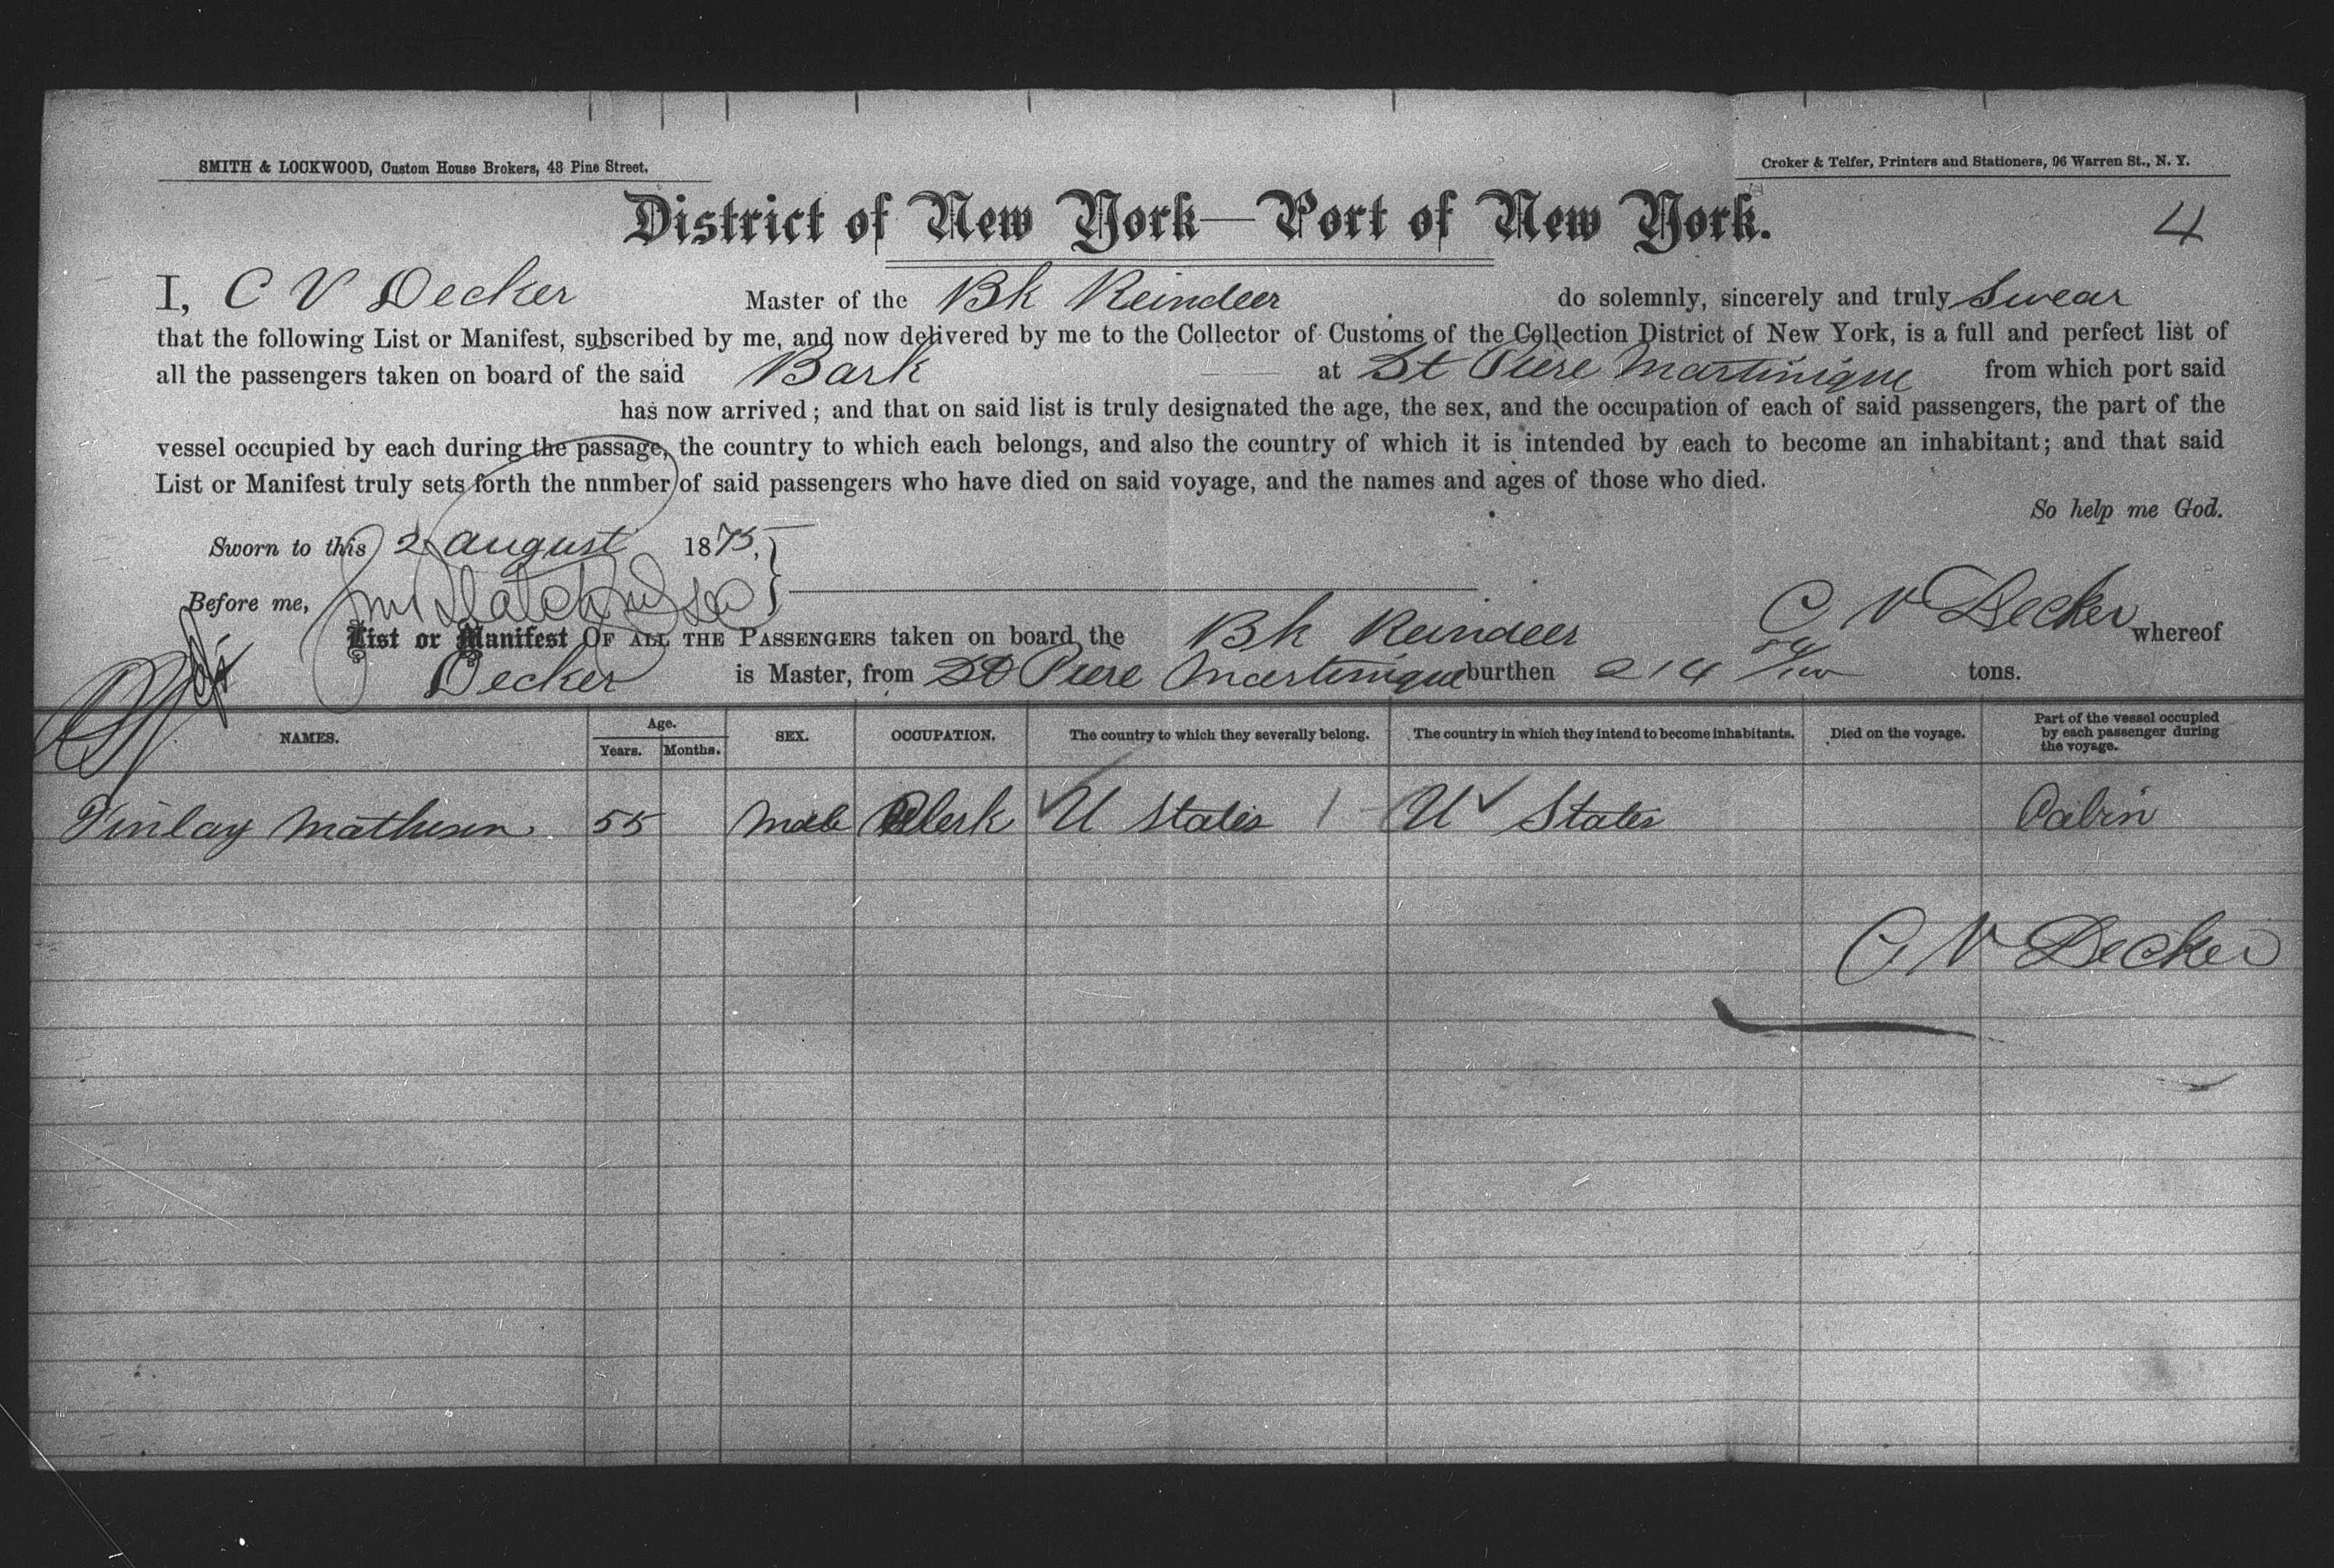 SMITH & LOCKWOOD, Custom House Brokers, 43 Pine Street.
Croker & Telfer, Printers and Stationers, 96 Warren St., N. Y.
District of New York—Port of New York.
4
I, C V Decker Master of the Bk Reindeer do solemnly, sincerely and truly Swear
that the following List or Manifest, subscribed by me, and now delivered by me to the Collector of Customs of the Collection District of New York, is a full and perfect list of
all the passengers taken on board of the said Bark at St Piere Martinique from which port said
has now arrived; and that on said list is truly designated the age, the sex, and the occupation of each of said passengers, the part of the
vessel occupied by each during the passage, the country to which each belongs, and also the country of which it is intended by each to become an inhabitant; and that said
List or Manifest truly sets forth the number of said passengers who have died on said voyage, and the names and ages of those who died.
So help me God.
Sworn to this 2 august 1875,
Before me,
C V Decker
List or Manifest OF ALL THE PASSENGERS taken on board the Bk Reindeer whereof
Decker is Master, from St Piere Martinique burthen 214 tons.
NAMES. Age. Years. Months. SEX. OCCUPATION. The country to which they severally belong. The country in which they intend to become inhabitants. Died on the voyage. Part of the vessel occupied by each passenger during the voyage.
Finlay Matheson 55 Male Clerk U States 1 U States Cabin
C V Decker